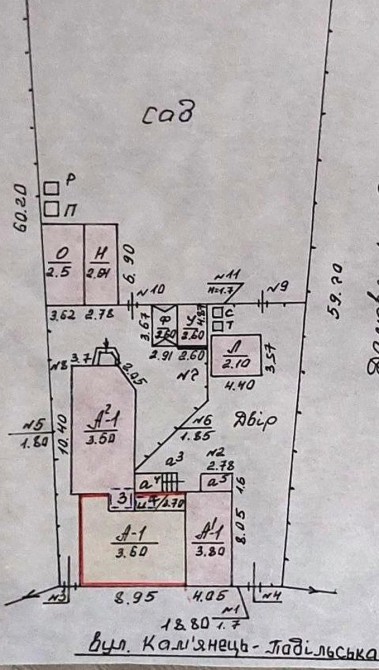 сад
60.20
59.20
Р
П
О
2.5
Н
6.90
№10
№11
№9
3.62
2.78
3.67
Ф
У
3.60
4.87
С
Т
Л
2.10
3.57
2.91
2.60
4.40
№7
№8
3.7
2.05
А²-1
3.50
10.40
№5
1.80
№6
1.85
Двір
а³
№2
2.78
а⁴
а⁵
1.6
З
2.70
А-1
3.60
А¹-1
3.80
8.05
№3
8.95
4.05
№1
1.7
№4
18.80
вул. Кам'янець-Подільська